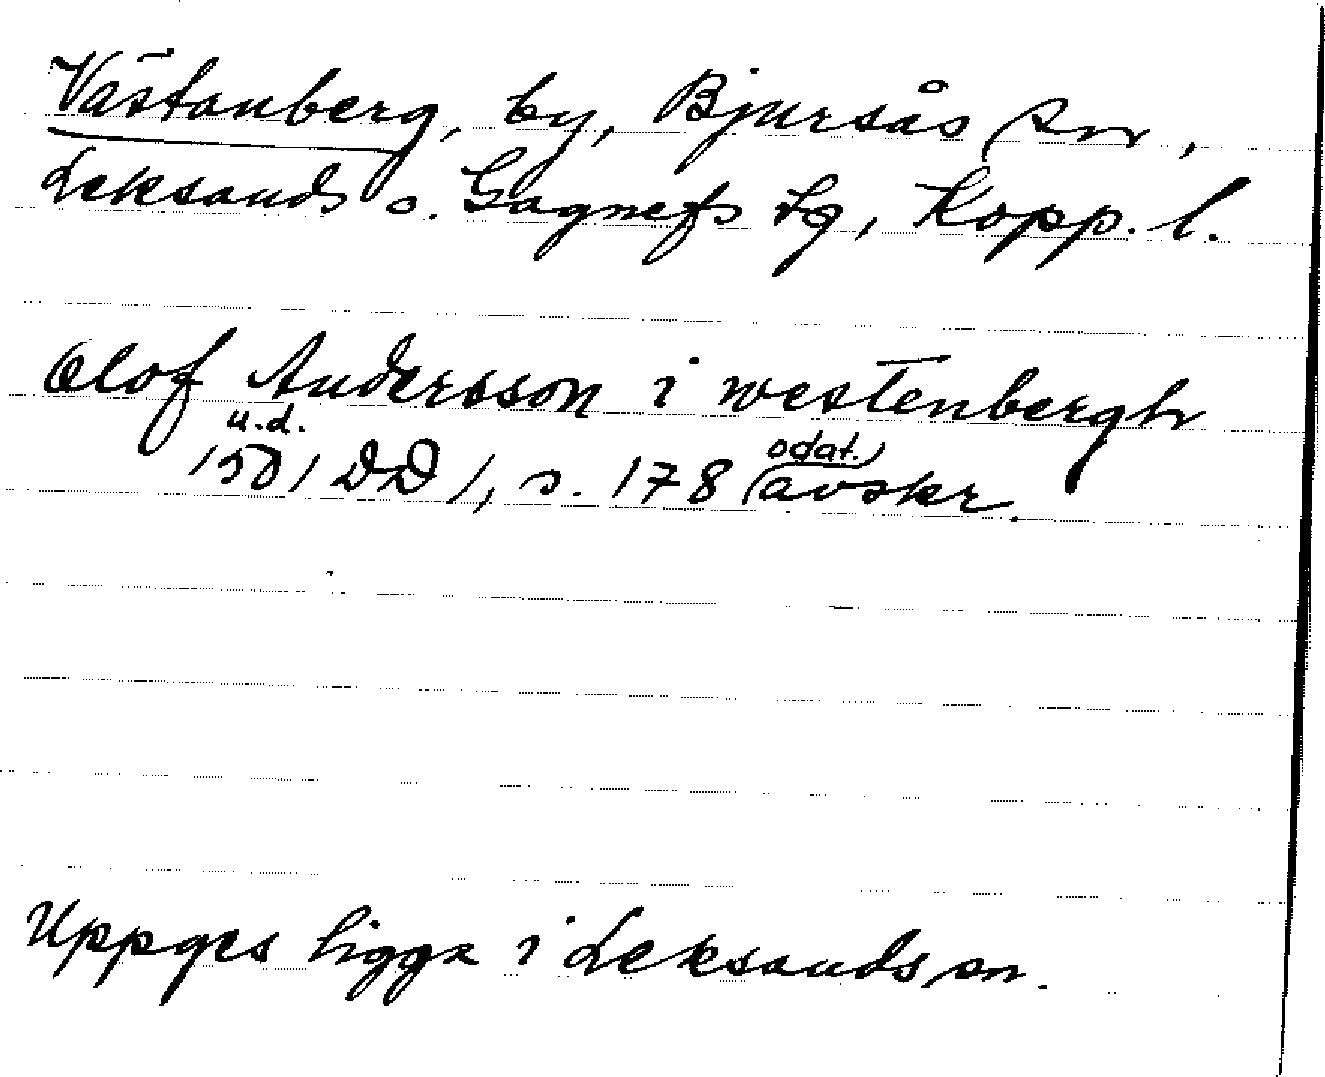 Västanberg, by, Bjursås sn,
Leksands o. Gagnefs tg, Kopp. l.
Olof Andersson i westenbergh
u.d. odat.
1501 DD 1, s. 178 (avskr.
Uppges ligga i Leksands sn.